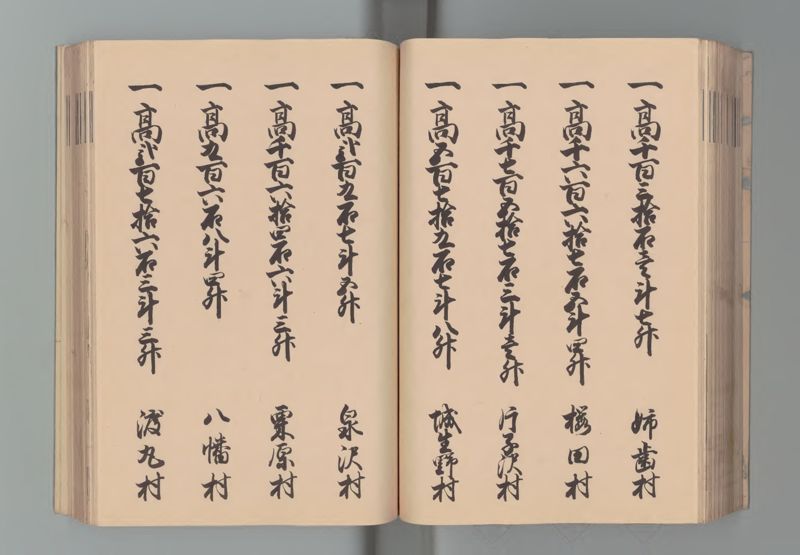 一高千百三拾石壱斗七升 姉歯村
一高千六百六拾七石五斗四升 桜田村
一高千七百五拾七石三斗壱升 片子沢村
一高五百七拾九石七斗八升 城生野村
一高弐百九石七斗五升 泉沢村
一高千百六拾四石六斗三升 栗原村
一高九百六石八斗四升 八幡村
一高弐百七拾六石三斗三升 渡丸村